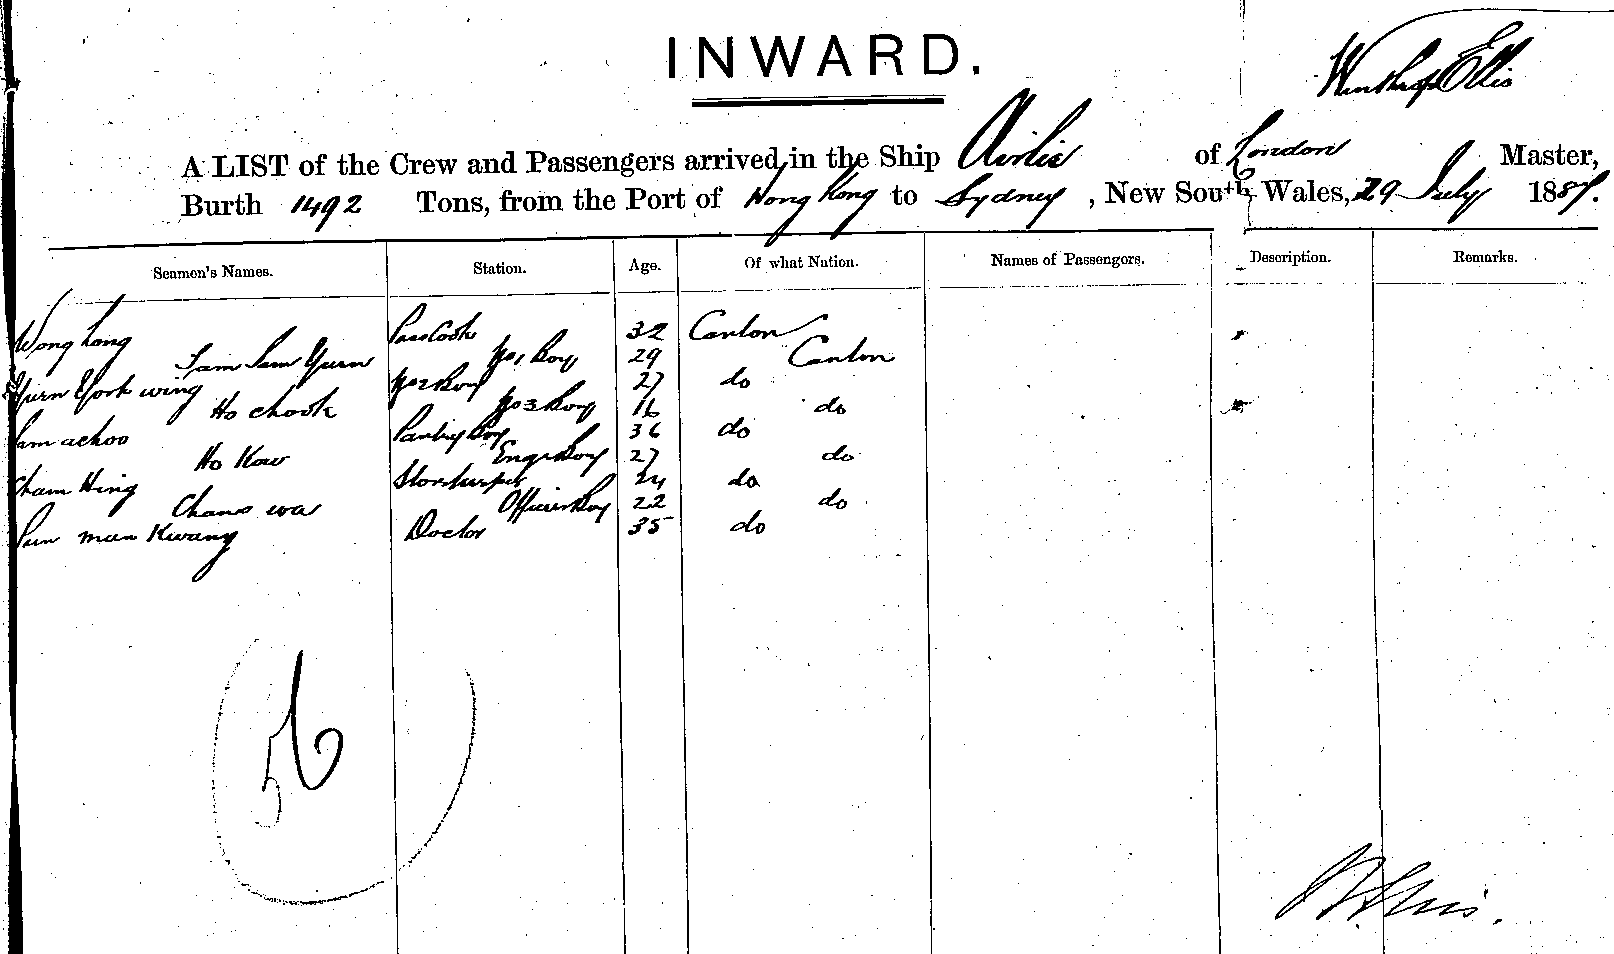 INWARD.
Winthrop Ellis
A LIST of the Crew and Passengers arrived in the Ship Airlie of London Master,
Burth 1492 Tons, from the Port of Hong Kong to Sydney, New South Wales, 29 July 1887.
Seamen's Names. Station. Age. Of what Nation. Names of Passengers. Description. Remarks.
Wong Long Pass Cook 32 Canton
Sam Yurn No 1 Boy 29 Canton
Yurn York wing No 2 Boy 27 do
Ho chook No 3 Boy 16 do
achoo Pantry Boy 36 do
Ho Kow Engrs Boy 27 do
Cham Hing Storekeeper 24 do
wa Officers Boy 22 do
man Kwang Doctor 35 do
56
W. Ellis.